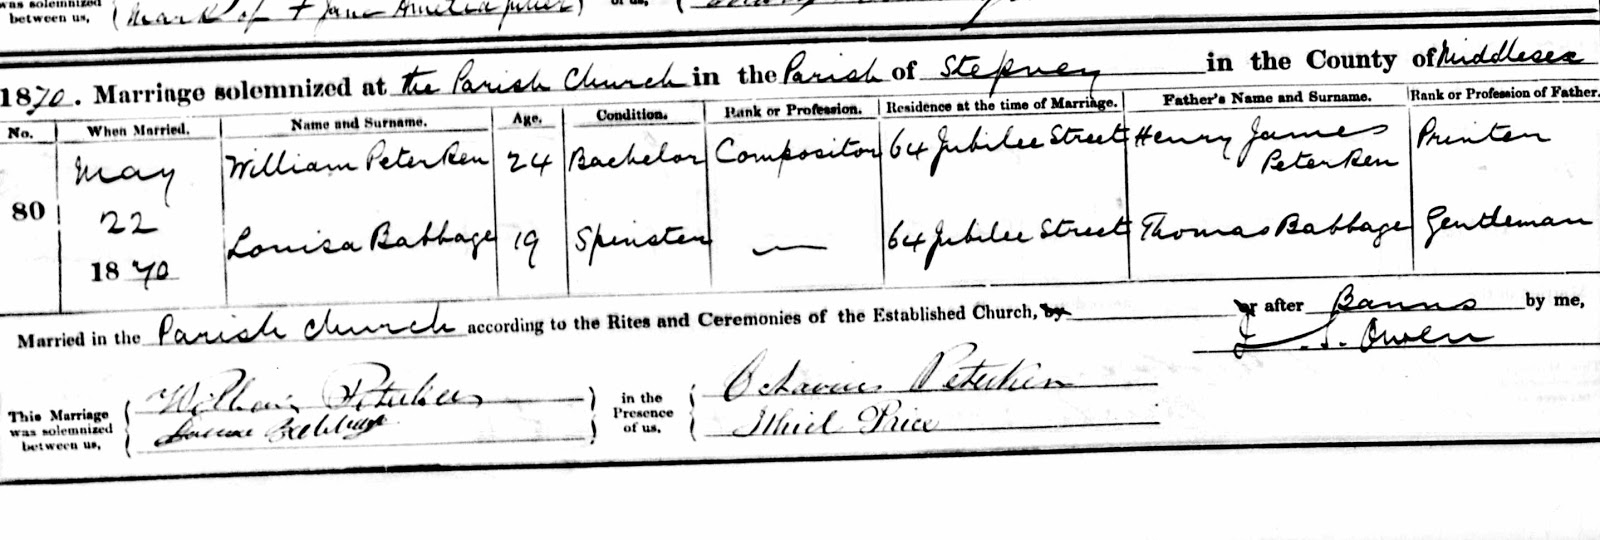 was solemnized between us, { Mark of + Jane Amelia } of us, {
1870. Marriage solemnized at the Parish Church in the Parish of Stepney in the County of Middlesex
No. When Married. Name and Surname. Age. Condition. Rank or Profession. Residence at the time of Marriage. Father's Name and Surname. Rank or Profession of Father.
80 May 22 1870 William Peterken 24 Bachelor Compositor 64 Jubilee Street Henry James Peterken Printer
Louisa Babbage 19 Spinster — 64 Jubilee Street Thomas Babbage Gentleman
Married in the Parish Church according to the Rites and Ceremonies of the Established Church, by or after Banns by me,
J. S. Owen
This Marriage was solemnized between us, { William Peterken } in the Presence of us, { Octavius Peterken
Louisa Babbage Price